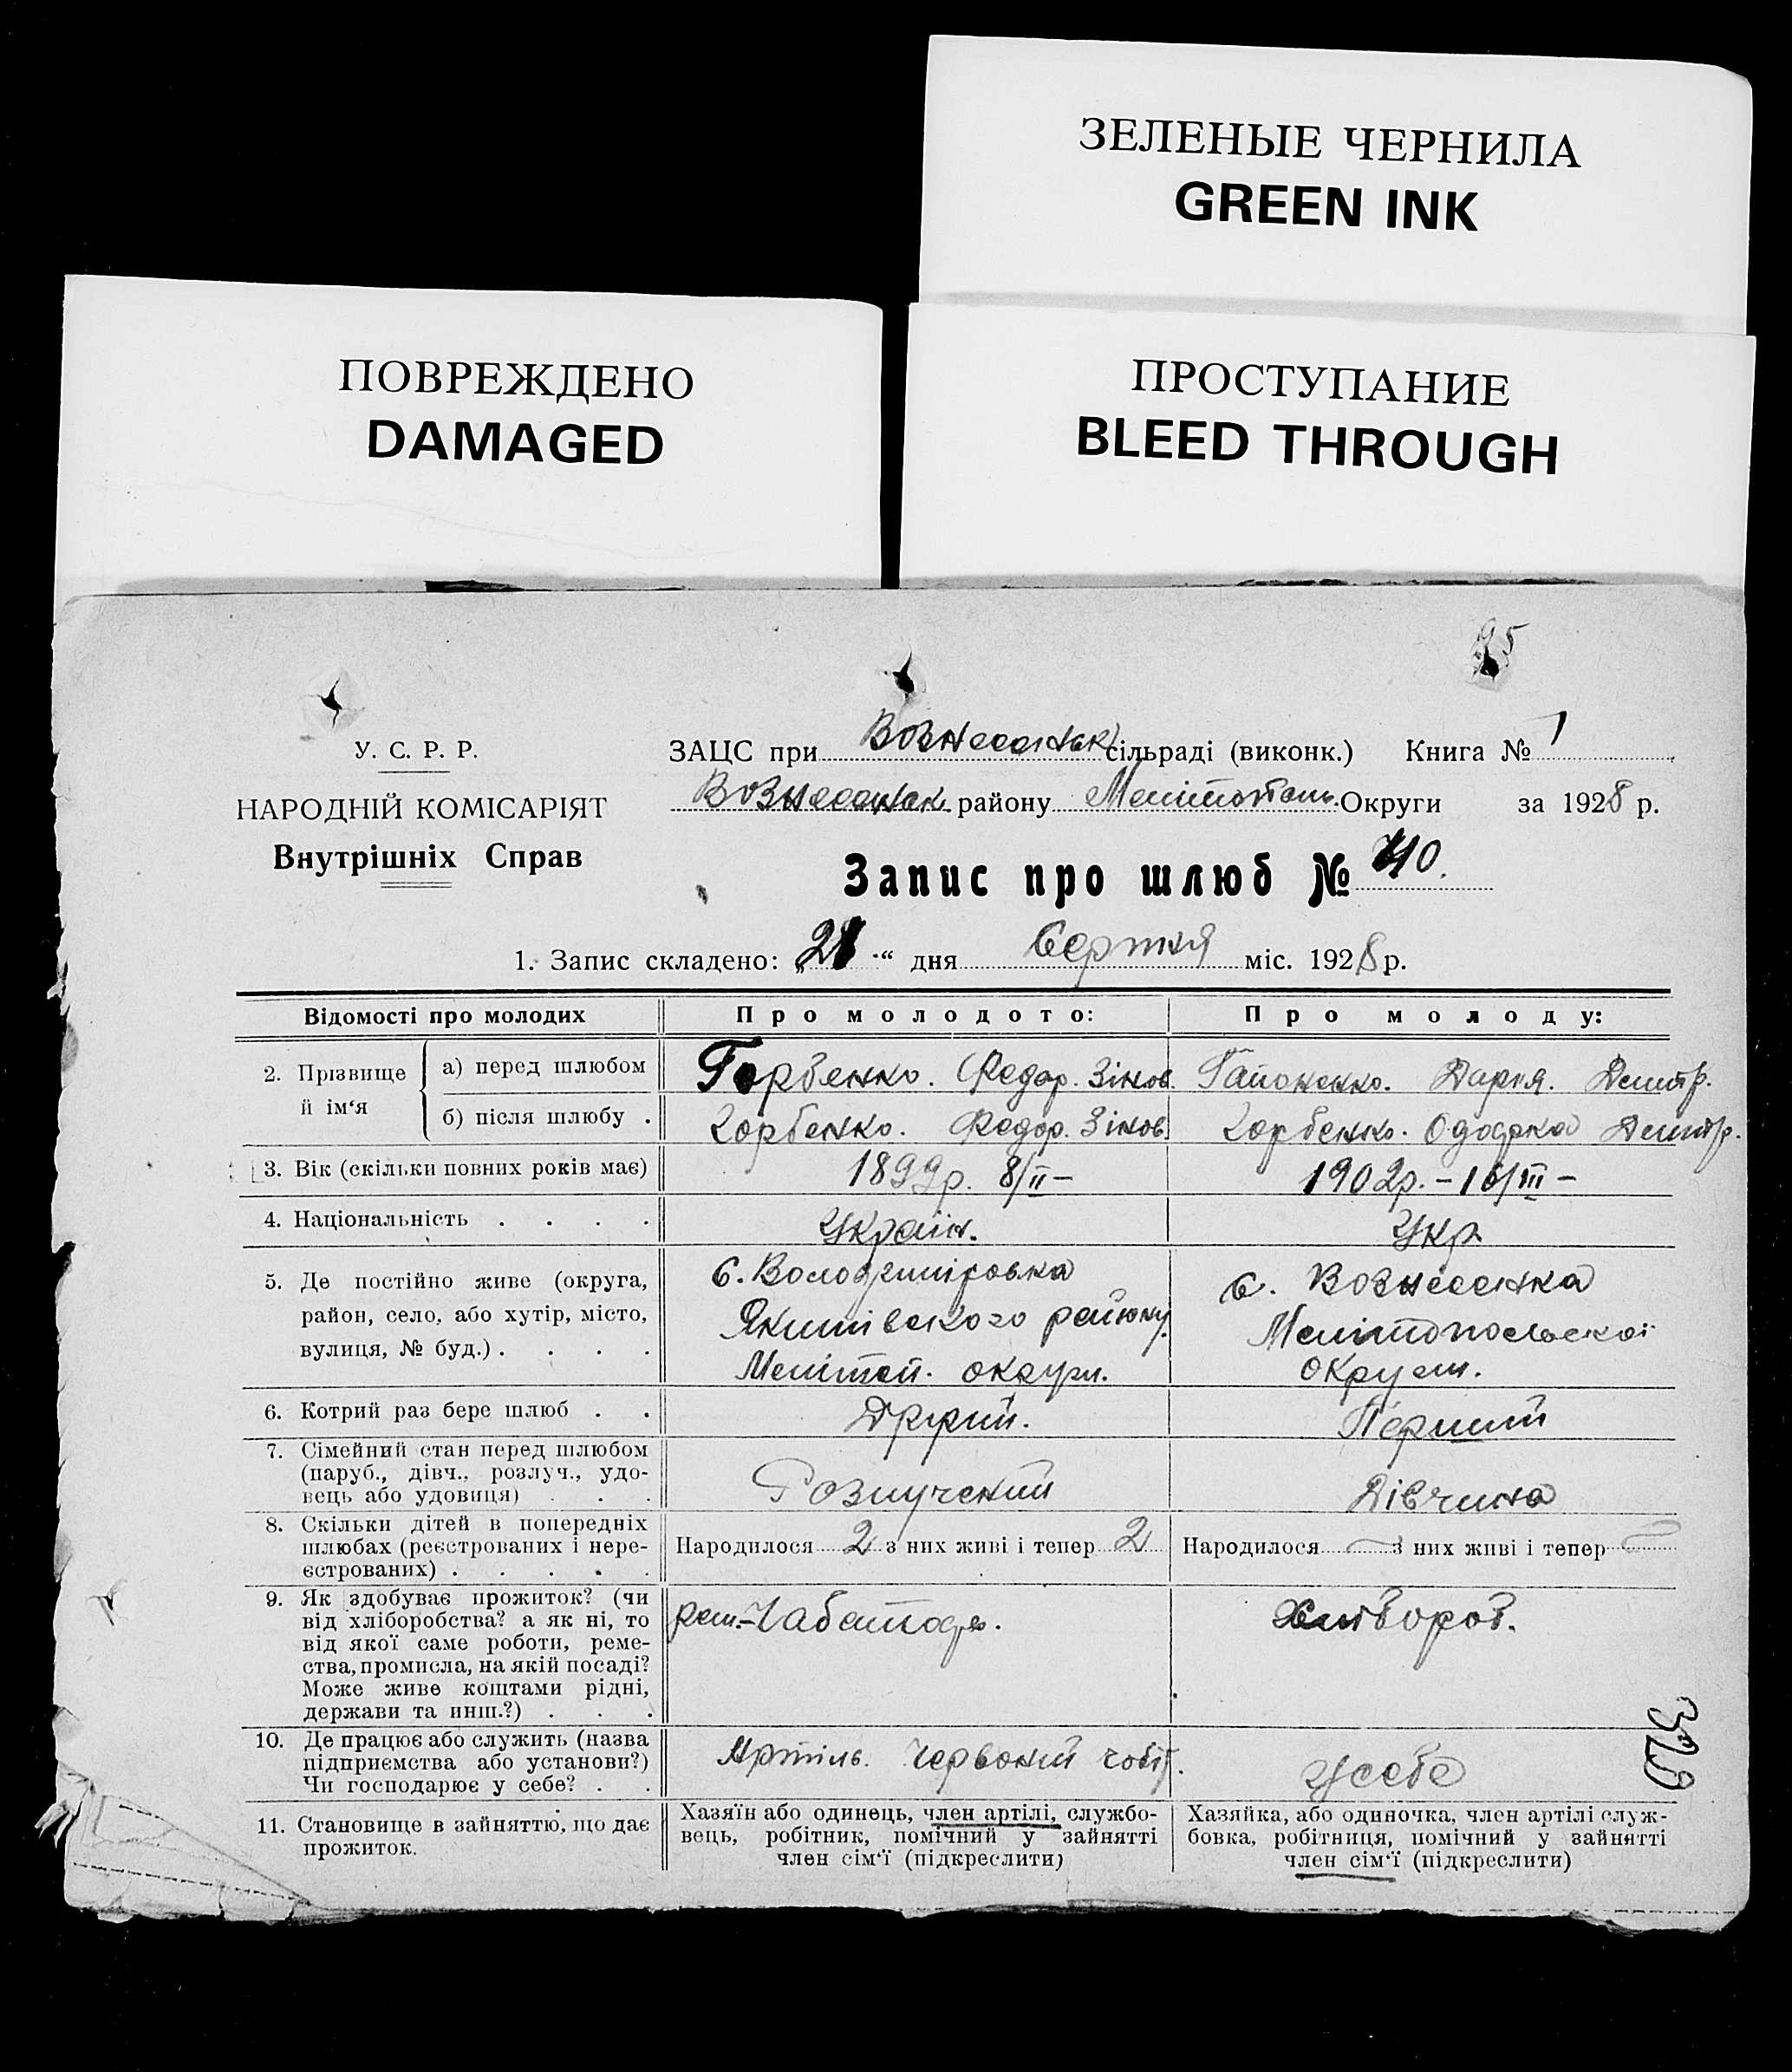 ЗЕЛЕНЫЕ ЧЕРНИЛА
GREEN INK
ПОВРЕЖДЕНО
DAMAGED
ПРОСТУПАНИЕ
BLEED THROUGH
95
У. С. Р. Р.
НАРОДНІЙ КОМІСАРІЯТ
Внутрішніх Справ
ЗАЦС при Вознесенськ сільраді (виконк.) Книга № 1
Вознесенськ. району Мелітопіль. Округи за 1928 р.
Запис про шлюб № 40.
1. Запис складено: „28“ дня Серпня міс. 1928 р.
Відомості про молодих
Про молодого:
Про молоду:
2. Прізвище й ім‘я
а) перед шлюбом
Горбенко. Федор. Зінов.
Дарія. Дмитр.
б) після шлюбу .
Горбенко. Федор. Зінов.
Горбенко. Одарка Дмитр.
3. Вік (скільки повних років має)
1899р. 8/II –
1902р. – 16/III –
4. Національність . . . .
Україн.
Укр.
5. Де постійно живе (округа,
район, село, або хутір, місто,
вулиця, № буд.) . . . .
с. Володимировка
Якимівського району
Мелітоп. округи.
с. Вознесенка
Мелітопольської
Округи.
6. Котрий раз бере шлюб . .
Другий.
Перший
7. Сімейний стан перед шлюбом
(паруб., дівч., розлуч., удо-
вець або удовиця) . . .
Розлучений
Дівчина
8. Скільки дітей в попередніх
шлюбах (реєстрованих і нере-
єстрованих) . . . . .
Народилося 2 з них живі і тепер 2
Народилося — з них живі і тепер —
9. Як здобуває прожиток? (чи
від хліборобства? а як ні, то
від якої саме роботи, реме-
ства, промисла, на якій посаді?
Може живе коштами рідні,
держави та инш.?) . . .
рем.-Чаботарь.
Хлібороб.
10. Де працює або служить (назва
підприємства або установи?)
Чи господарює у себе? . .
Артіль. Червоний чобіт.
У себе
11. Становище в зайняттю, що дає
прожиток.
Хазяїн або одинець, член артілі, службо-
вець, робітник, помічний у зайнятті
член сім‘ї (підкреслити)
Хазяйка, або одиночка, член артілі служ-
бовка, робітниця, помічний у зайнятті
член сім‘ї (підкреслити)